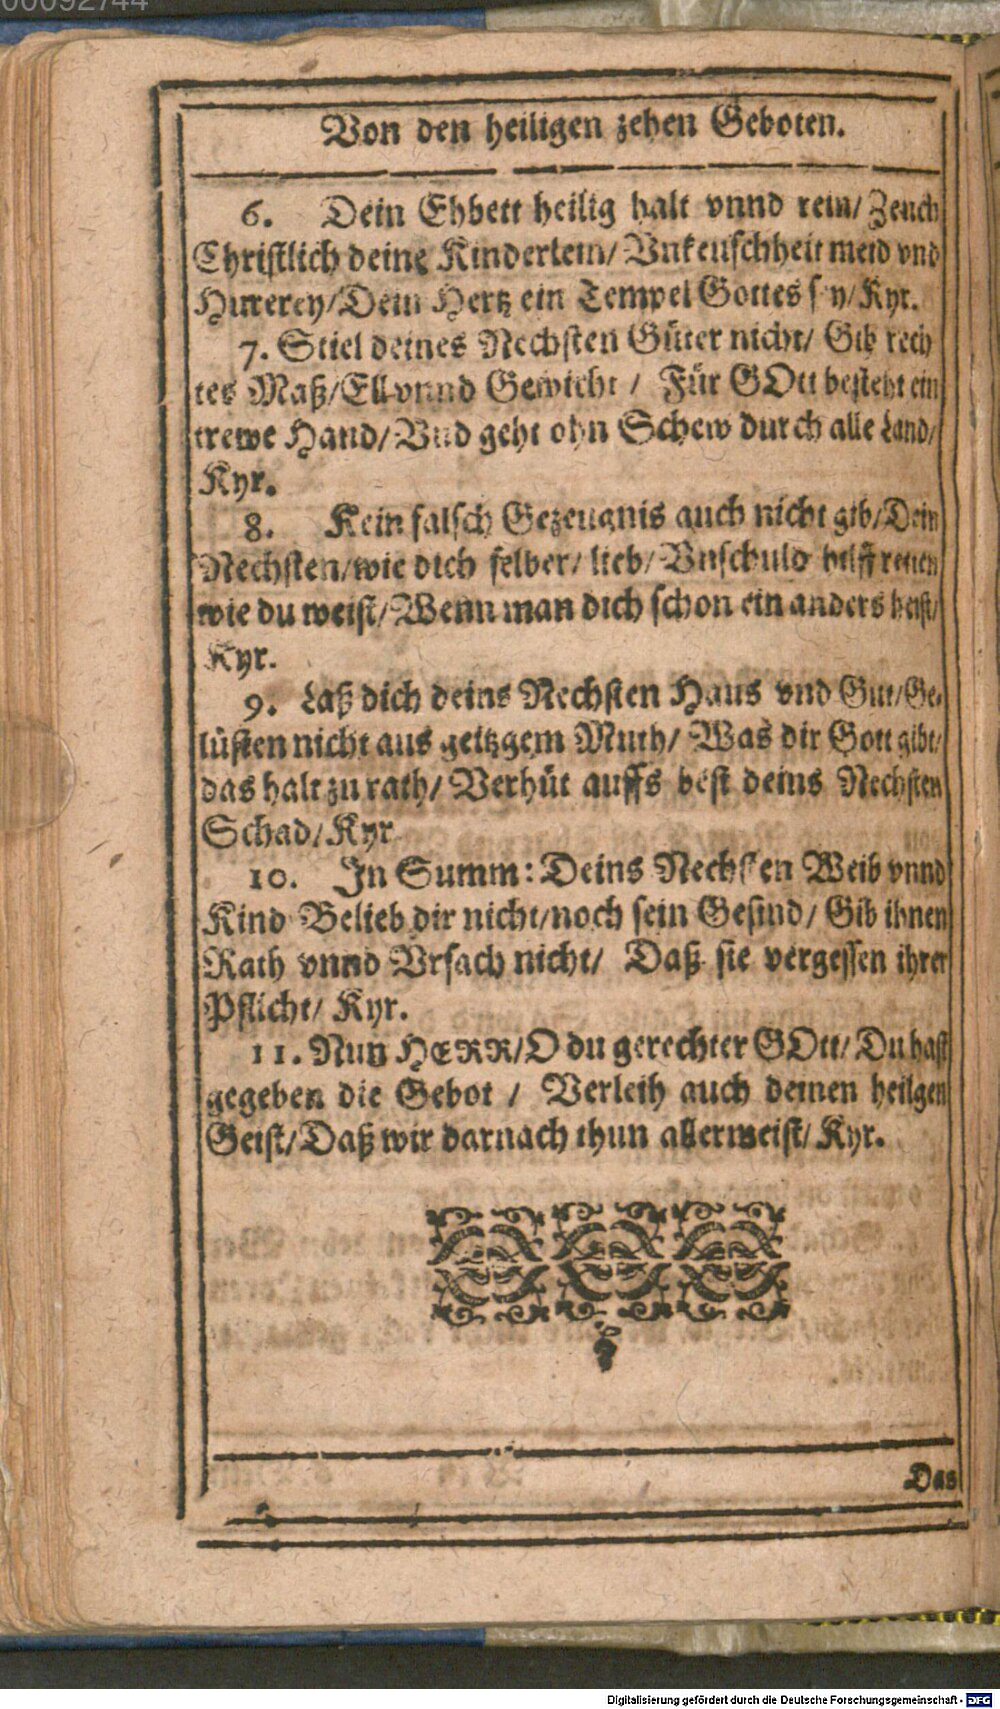 00092744
Von den heiligen zehen Geboten.
6. Dein Ehbett heilig halt vnnd rein/ Zeuch
Christlich deine Kinderlein/ Vnkeuschheit meid vnd
Hurerey/ Dein Hertz ein Tempel Gottes sey/ Kyr.
7. Stiel deines Nechsten Güter nicht/ Gib rech
tes Maß/ Ell vnnd Gewicht / Für GOtt besteht ein
trewe Hand/ Vnd geht ohn Schew durch alle Land/
Kyr.
8. Kein falsch Gezeugnis auch nicht gib/ Dein
Nechsten/ wie dich selber/ lieb/ Vnschuld hilff retten
wie du weist/ Wenn man dich schon ein anders heist/
Kyr.
9. Laß dich deins Nechsten Haus vnd Gut/ Ge-
lüsten nicht aus geitzgem Muth/ Was dir Gott gibt/
das halt zu rath/ Verhüt auffs best deins Nechsten
Schad/ Kyr
10. In Summ: Deins Nechsten Weib vnnd
Kind Belieb dir nicht/ noch sein Gesind/ Gib ihnen
Rath vnnd Vrsach nicht/ Daß sie vergessen ihrer
Pflicht/ Kyr.
11. Nun HERR/ O du gerechter GOtt/ Du hast
gegeben die Gebot / Verleih auch deinen heilgen
Geist/ Daß wir darnach thun allermeist/ Kyr.
Das
Digitalisierung gefördert durch die Deutsche Forschungsgemeinschaft - DFG